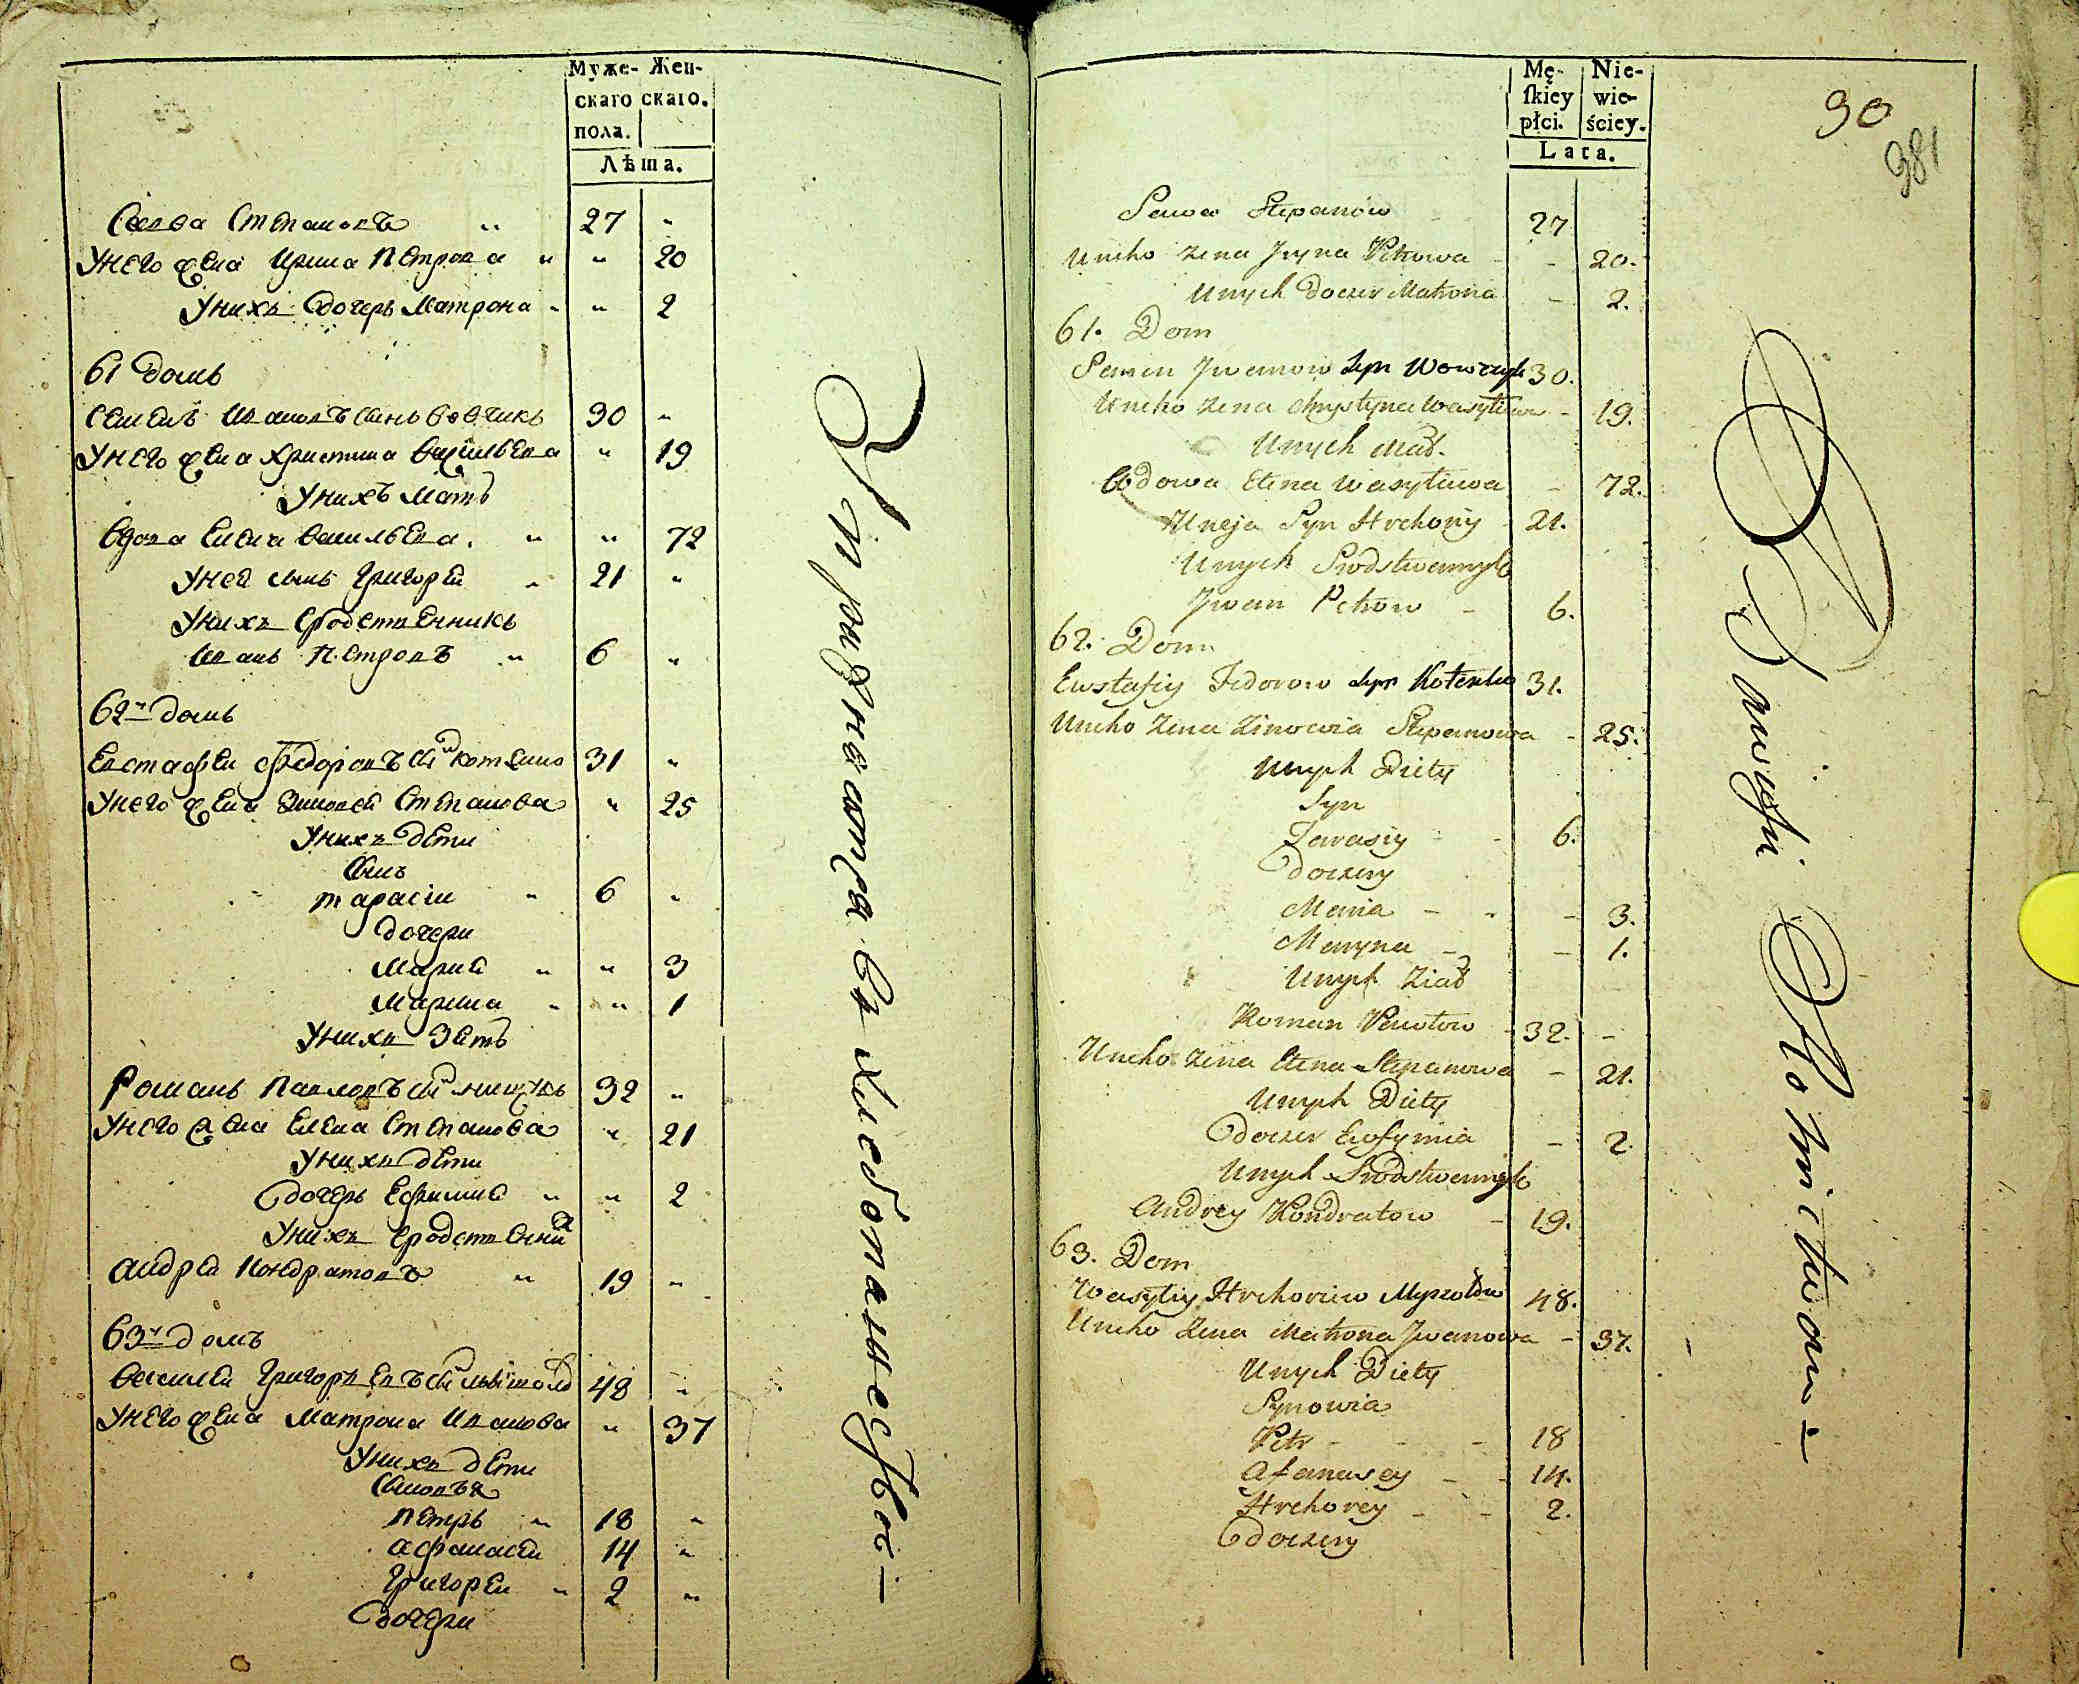 Муже- Жен-
скаго скаго.
пола.
Лѣта.
Савва Степановъ " 27 "
Унего жена Ирина Петрова " " 20
Унихъ дочерь Матрона " " 2
61 домъ
Семенъ Ивановъ сынъ Вовчикъ 30 "
Унего жена Христина Васильева " 19
Унихъ мать
Вдова Елена Васильева " " 72
Уней сынъ Григорей " 21 "
Унихъ сродственникъ
Иванъ Петровъ " 6 "
62й домъ
Евстафеи Федоровъ сын Котенко 31 "
Унего жена Зиновея Степанова " 25
Унихъ дети
Сынъ
Тарасіи " 6 "
дочери
Марія " " 3
Марина " " 1
Унихъ зять
Романъ Павловъ сын 32 "
Унего жена Елена Степанова " 21
Унихъ дети
дочерь Ефимия " " 2
Унихъ сродственник
Андреи Кондратовъ " 19 "
63й домъ
Василеи Григорьевъ сын 48 "
Унего жена Матрона Иванова " 37
Унихъ дети
Сыновья
Петръ " 18 "
Афанасеи 14 "
Григореи " 2 "
дочери
Упражняются въ хлебопашествѣ
Mę- Nie-
ſkiey wie-
płci. ściey.
Lata.
30
381
Sawa Stepanów 27
Uneho zena Jryna Petrowa - - 20.
Unych doczer Matrona - 2.
61. Dom
Semen Jwanow syn Wowczyk 30.
Uneho zena Chrystyna Wasyliwa - 19.
Unych Mat.
Wdowa Elena Wasyliwa - 72.
Uneja Syn Hrehoriy 21.
Unych Srodstwennyk
Jwan Petrow - 6.
62. Dom
Ewstafiy Fedorow syn Kotenko 31.
Uneho zena Zinowia Stepanowa - 25.
Unych Diety
Syn
Tarasiy - - 6.
Doczery
Maria - - - 3.
Maryna - - 1.
Unych Ziat
Roman Pawlow - 32. -
Uneho zena Elena Stepanowa - 21.
Unych Diety
Doczer Ewfymia - 2.
Unych Srodstwennyk
Andrey Kondratow - 19.
63. Dom
Wasyliy Hrehoriew 48.
Uneho zena Matrona Jwanowa - 37.
Unych Diety
Synowia
Petr - - - 18
Afanasey - - 14.
Hrehorey - - 2.
Doczery
Bawiąsię Rolnictwem